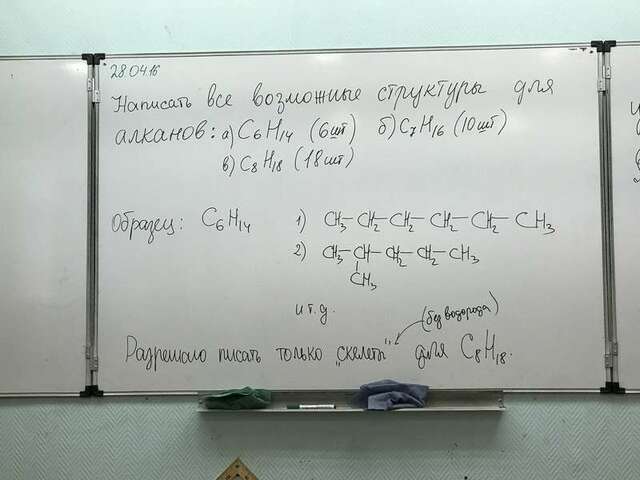 28.04.16
Написать все возможные структуры для
алканов: а) C6H14 (6шт) б) C7H16 (10шт)
в) C8H18 (18шт)
Образец: C6H14
1) CH3-CH2-CH2-CH2-CH2-CH3
2) CH3-CH-CH2-CH2-CH3
CH3
и т.д.
(без водорода)
Разрешаю писать только „скелеты" для C8H18.